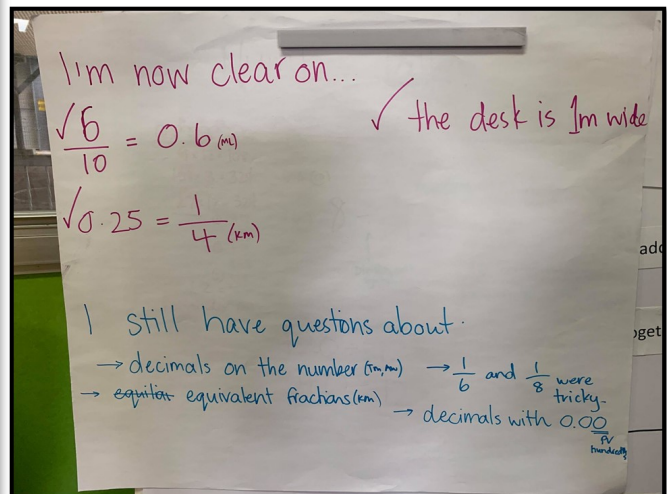 I'm now clear on...
√ 6/10 = 0.6 (ML)
√ the desk is 1m wide
√ 0.25 = 1/4 (km)
I still have questions about.
→ decimals on the number
→ 1/6 and 1/8 were tricky.
→ equivalent fractions (km)
→ decimals with 0.00
PV
hundredths
add